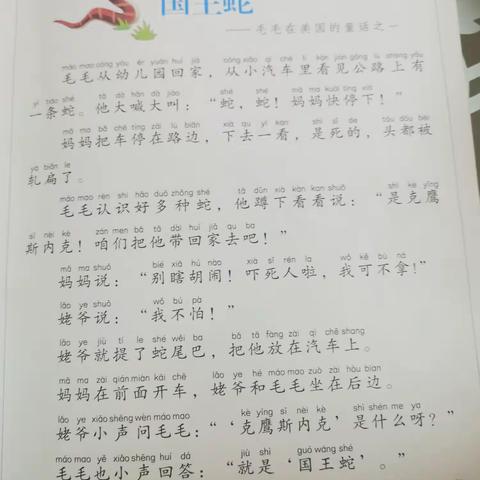 国王蛇
——毛毛在美国的童话之一
máo mao cóng yòu ér yuán huí jiā cóng xiǎo qì chē lǐ kàn jiàn gōng lù shang yǒu
毛毛从幼儿园回家，从小汽车里看见公路上有
yì tiáo shé tā dà hǎn dà jiào shé shé mā ma kuài tíng xià
一条蛇。他大喊大叫：“蛇，蛇！妈妈快停下！”
mā ma bǎ chē tíng zài lù biān xià qu yí kàn shì sǐ de tóu dōu bèi
妈妈把车停在路边，下去一看，是死的，头都被
yà biǎn le
轧扁了。
máo mao rèn shi hǎo duō zhǒng shé tā dūn xià kàn kan shuō shì kè yīng
毛毛认识好多种蛇，他蹲下看看说：“是克鹰
sī nèi kè zán men bǎ tā dài huí jiā qù ba
斯内克！咱们把他带回家去吧！”
mā ma shuō bié xiā hú nào xià sǐ rén la wǒ kě bù ná
妈妈说：“别瞎胡闹！吓死人啦，我可不拿！”
lǎo ye shuō wǒ bú pà
姥爷说：“我不怕！”
lǎo ye jiù tí le shé wěi ba bǎ tā fàng zài qì chē shang
姥爷就提了蛇尾巴，把他放在汽车上。
mā ma zài qián miàn kāi chē lǎo ye hé máo mao zuò zài hòu bian
妈妈在前面开车，姥爷和毛毛坐在后边。
lǎo ye xiǎo shēng wèn máo mao kè yīng sī nèi kè shì shén me ya
姥爷小声问毛毛：“‘克鹰斯内克’是什么呀？”
máo mao yě xiǎo shēng huí dá jiù shì guó wáng shé
毛毛也小声回答：“就是‘国王蛇’。”